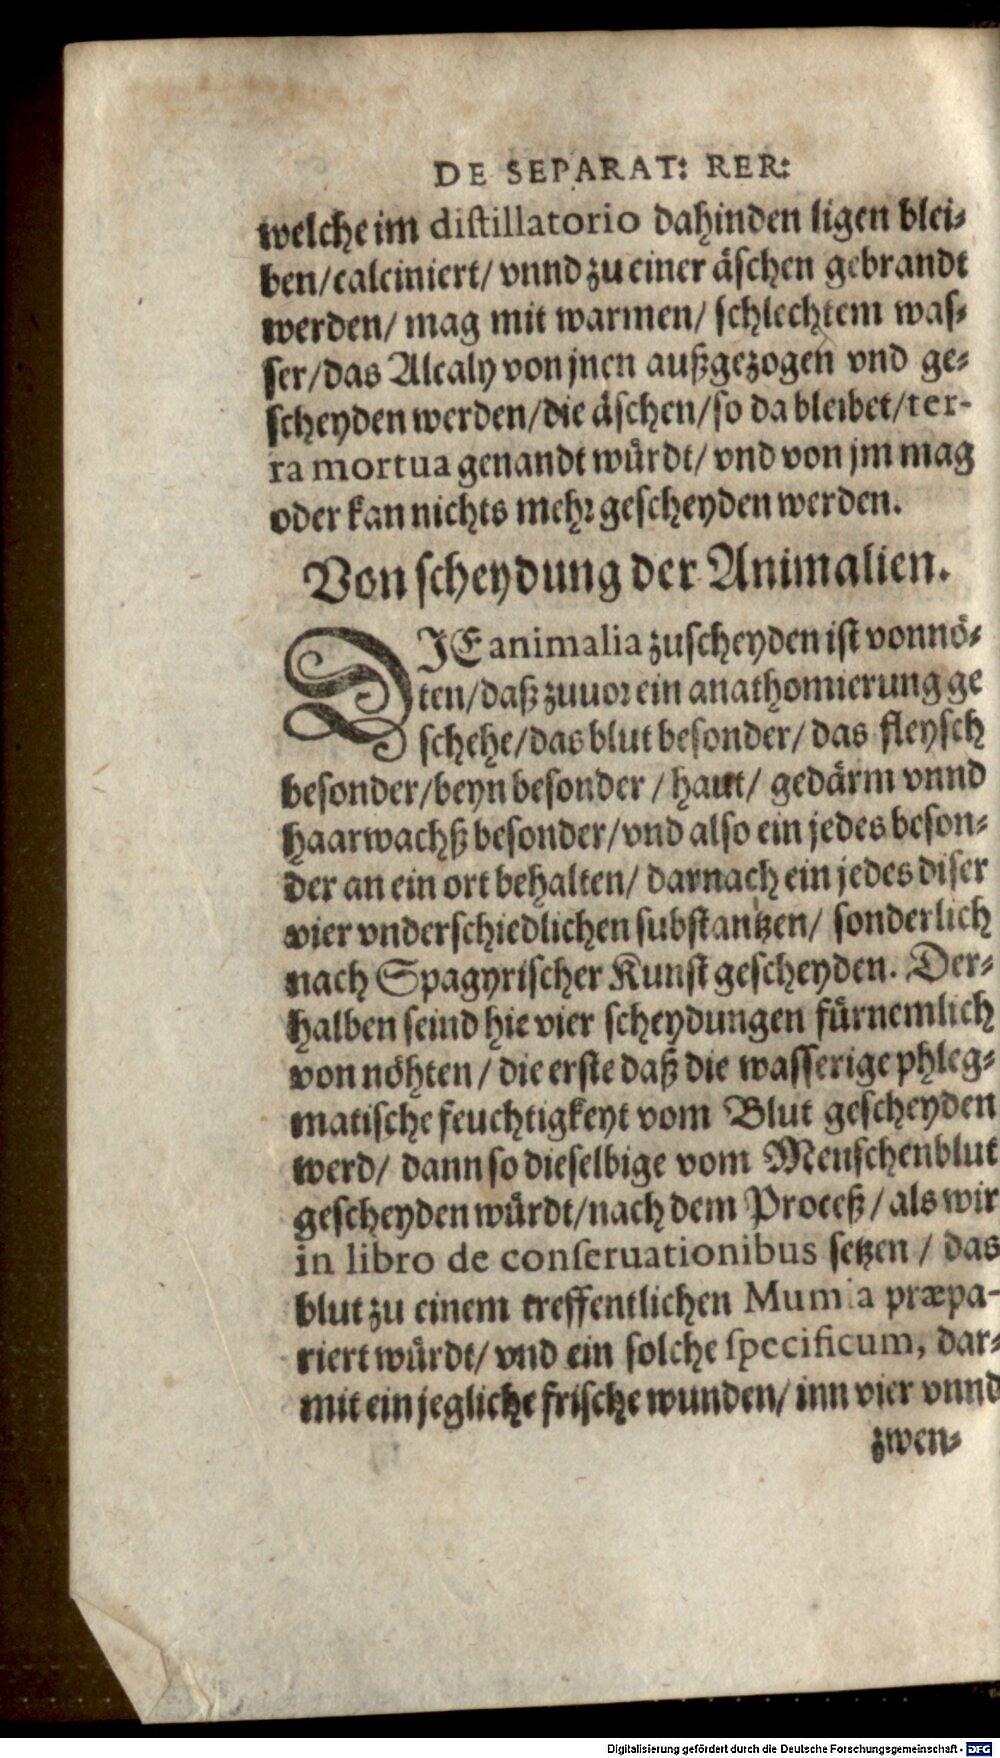 DE SEPARAT: RER:
welche im distillatorio dahinden ligen blei⸗
ben/calciniert/ vnnd zu einer äschen gebrandt
werden/ mag mit warmen/ schlechtem was⸗
ser/das Alcaly von jnen außgezogen vnd ge⸗
scheyden werden/die äschen/so da bleibet/ter-
ra mortua genandt würdt/ vnd von jm mag
oder kan nichts mehr gescheyden werden.
Von scheydung der Animalien.
DIE animalia zuscheyden ist vonnö⸗
ten/daß zuuor ein anathomierung ge
schehe/das blut besonder/ das fleysch
besonder/beyn besonder / haut/ gedärm vnnd
haarwachß besonder/vnd also ein jedes beson⸗
der an ein ort behalten/ darnach ein jedes diser
vier vnderschiedlichen substantzen/ sonderlich
nach Spagyrischer Kunst gescheyden. Der⸗
halben seind hie vier scheydungen fürnemlich
von nöhten / die erste daß die wasserige phleg⸗
matische feuchtigkeyt vom Blut gescheyden
werd/ dann so dieselbige vom Menschenblut
gescheyden würdt/nach dem Proceß / als wir
in libro de conseruationibus setzen / das
blut zu einem treffentlichen Mumia præpa-
riert würdt/ vnd ein solche specificum, dar⸗
mit ein jegliche frische wunden/ inn vier vnnd
zwen⸗
Digitalisierung gefördert durch die Deutsche Forschungsgemeinschaft - DFG